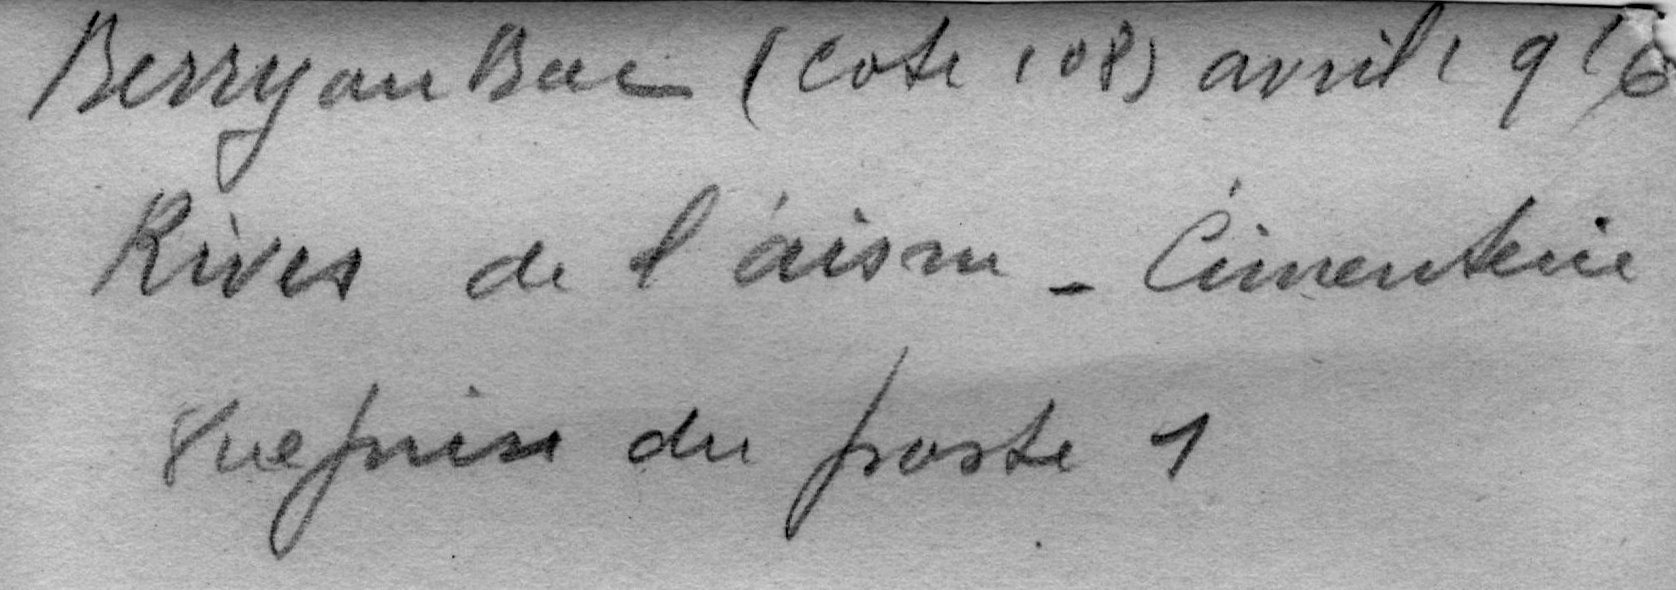 Berry au Bac (Cote 108) avril 1916
Rives de l'aisne - Cimenterie
Vue prise du poste 1